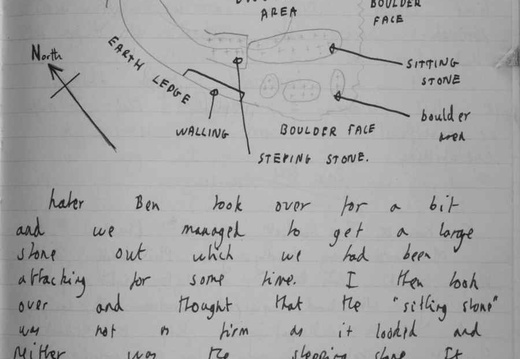 AREA
BOULDER
FACE
North
EARTH LEDGE
SITTING
STONE
WALLING
BOULDER FACE
boulder
area
STEPING STONE.
hater Ben took over for a bit
and we managed to get a large
stone out which we had been
attacking for some time. I then took
over and thought that the "sitting stone"
was not as firm as it looked and
Neither was the stepping stone It